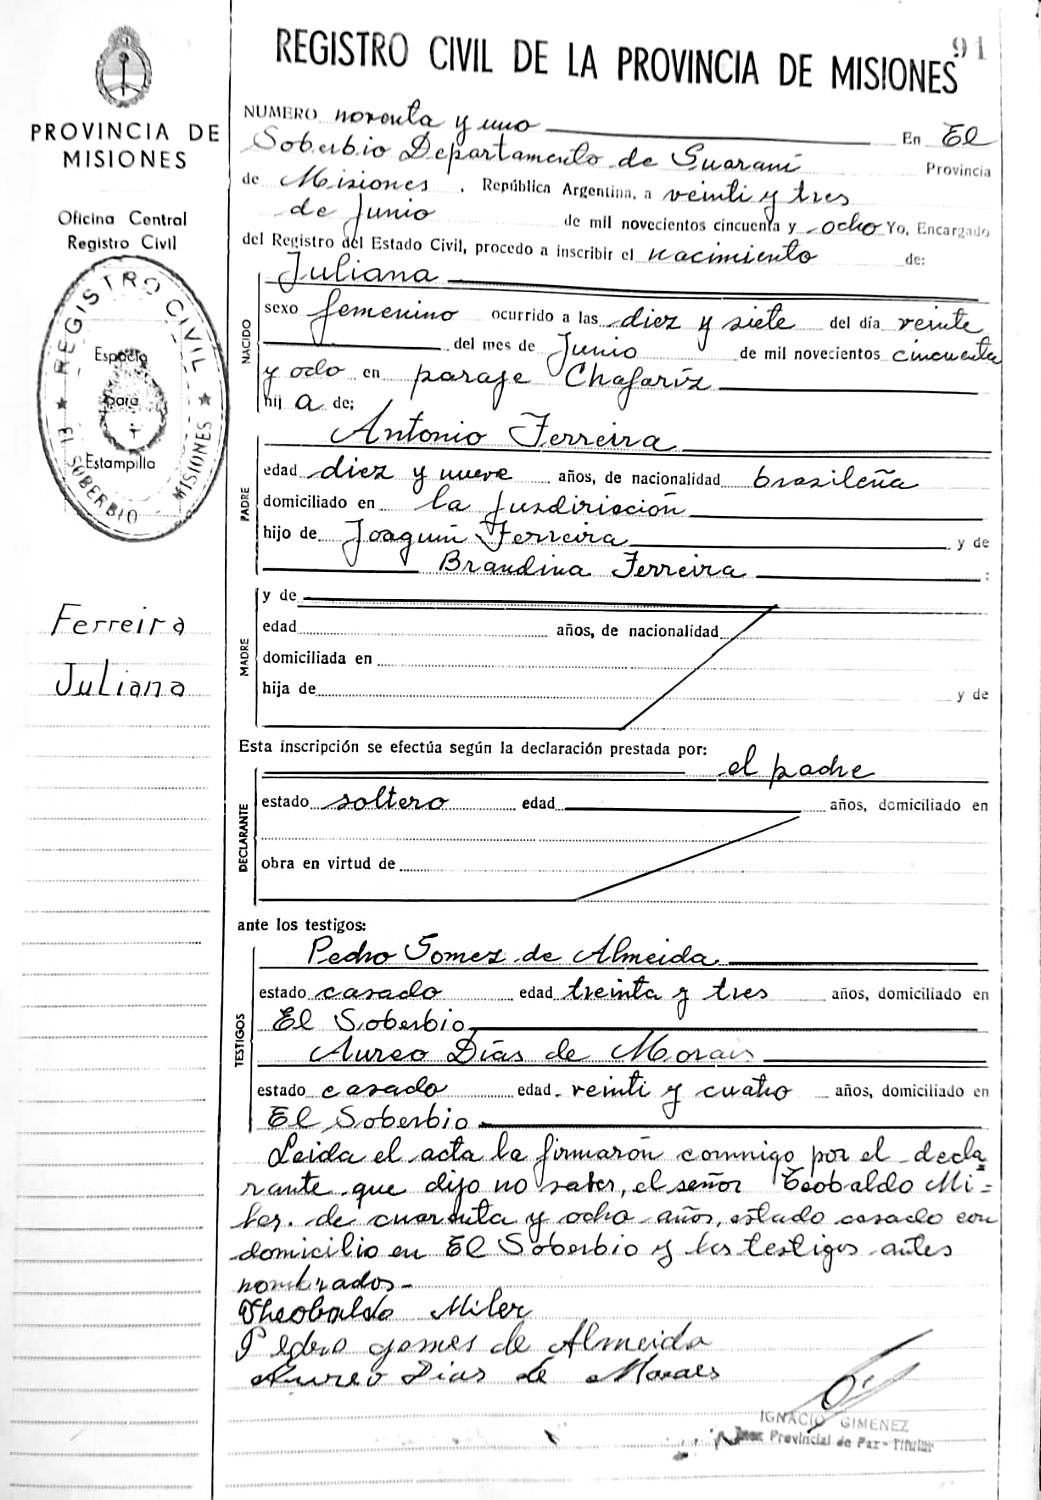 91
REGISTRO CIVIL DE LA PROVINCIA DE MISIONES
PROVINCIA DE
MISIONES
Oficina Central
Registro Civil
REGISTRO CIVIL
★ EL SOBERBIO MISIONES ★
Espacio
para
Estampilla
Ferreira
Juliana
NUMERO noventa y uno En El
Soberbio Departamento de Guaraní Provincia
de Misiones, República Argentina, a veinti y tres
de Junio de mil novecientos cincuenta y ocho Yo, Encargado
del Registro del Estado Civil, procedo a inscribir el nacimiento de:
NACIDO
Juliana
sexo femenino ocurrido a las diez y siete del día veinte
del mes de Junio de mil novecientos cincuenta
y oclo en paraje Chafariz
hij a de;
PADRE
Antonio Ferreira
edad diez y nueve años, de nacionalidad brasileña
domiciliado en la
hijo de Joaquin Ferreira y de
Brandina Ferreira ;
MADRE
y de
edad años, de nacionalidad
domiciliada en
hija de y de
Esta inscripción se efectúa según la declaración prestada por:
el padre
DECLARANTE
estado soltero edad años, domiciliado en
obra en virtud de
ante los testigos:
TESTIGOS
Pedro Gomez de Almeida
estado casado edad treinta y tres años, domiciliado en
El Soberbio
Aureo Días de Morais
estado casado edad veinti y cuatro años, domiciliado en
El Soberbio
Leida el acta la firmarón conmigo por el decla
rante que dijo no saber, el señor Teobaldo Mi=
ler. de cuarenta y ocho años, estado casado con
domicilio en El Soberbio y los testigos antes
nombrados-
Theobaldo Miler
Pedro gomes de Almeida
Aureo Dias de Moraes
IGNACIO GIMENEZ
Juez Provincial de Paz - Titular